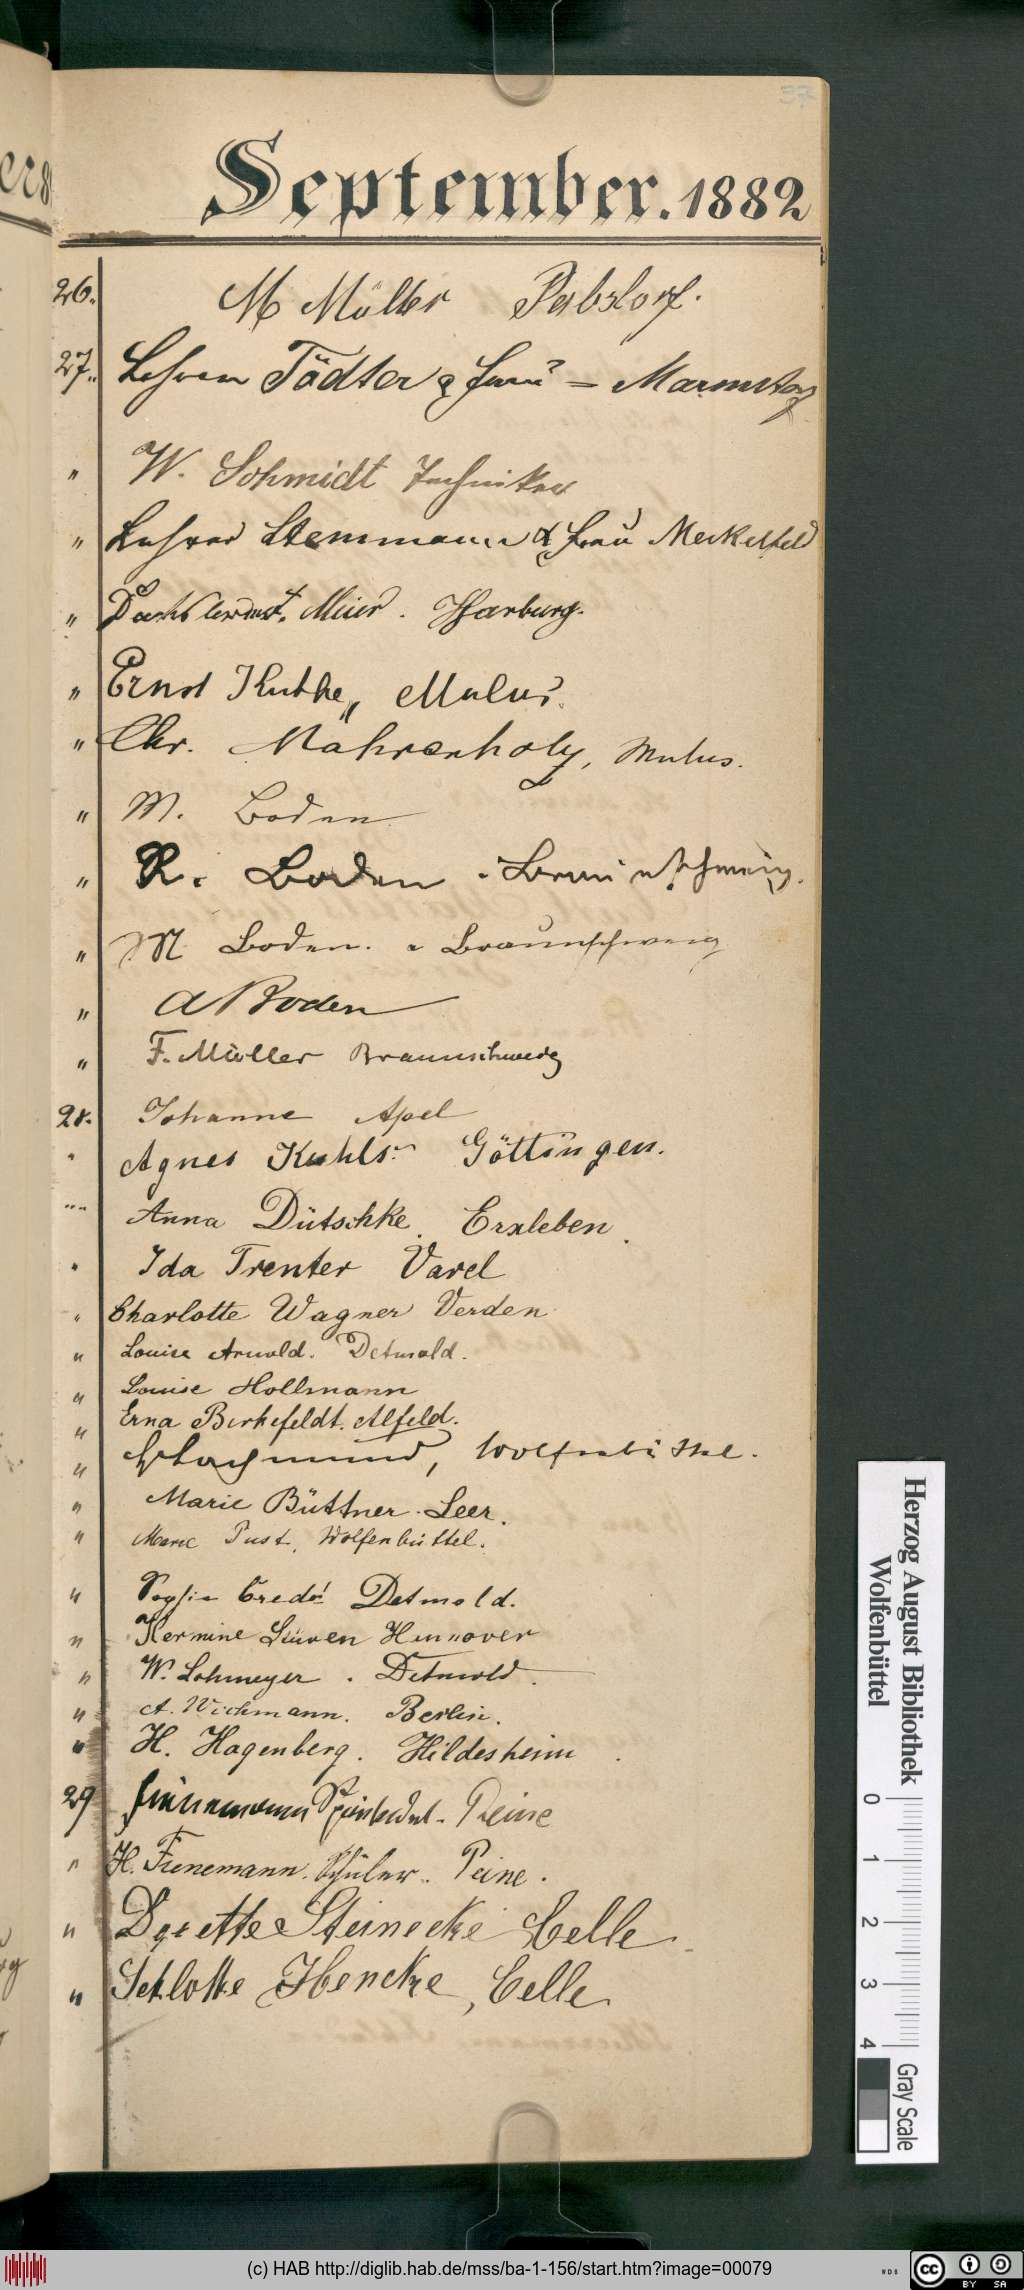 37
September. 1882
26. M Möller Pabstorf.
27. Lehrer Tödter & Frau =
" W. Schmidt Techniker
" Lehrer Stemmann & Frau Meckelfeld
" Meier. Harburg.
" Ernst Kuthe, Mulus.
" Chr. Mahrenholz, Mulus.
" M. Boden
" R. Boden. Braunschweig.
" M Boden. Braunschweig
" A Boden
" F. Müller Braunschweig
28. Johanne Apel
" Agnes Kuhls. Göttingen.
" Anna Dütschke. Erxleben.
" Ida Trenter Varel
" Charlotte Wagner Verden
" Louise Arnold. Detmold.
" Louise Hollmann
" Erna Birkefeldt. Alfeld.
" Wolfenbüttel.
" Marie Büttner. Leer.
" Marie Pust, Wolfenbüttel.
" Sophie Credé Detmold.
" Hermine Stüven Hannover
" W. Lohmeyer. Detmold.
" A. Wichmann. Berlin.
" H. Hagenberg. Hildesheim.
29 Peine
" H. Fienemann. Schüler. Peine.
" Dorette Steinecke Celle.
" Hencke, Celle.
Herzog August Bibliothek
Wolfenbüttel
0 1 2 3 4
Gray Scale
(c) HAB http://diglib.hab.de/mss/ba-1-156/start.htm?image=00079
cc BY SA